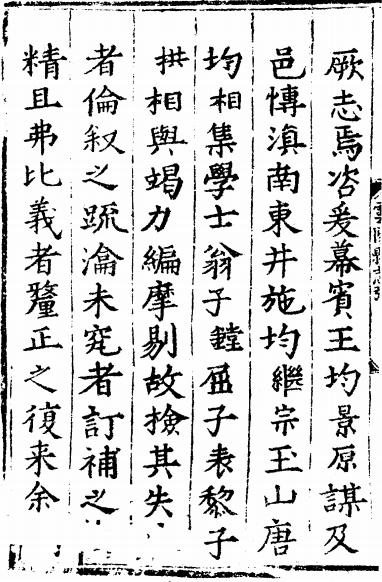 厥志焉咨爰幕賓王均景原謀及
邑慱滇南東井施均繼宗玉山唐
均相集學士翁子鏜屈子表黎子
拱相與竭力編摩剔故撿其失
者倫叙之䟽瀹未究者訂補之
精且弗比義者釐正之復来余